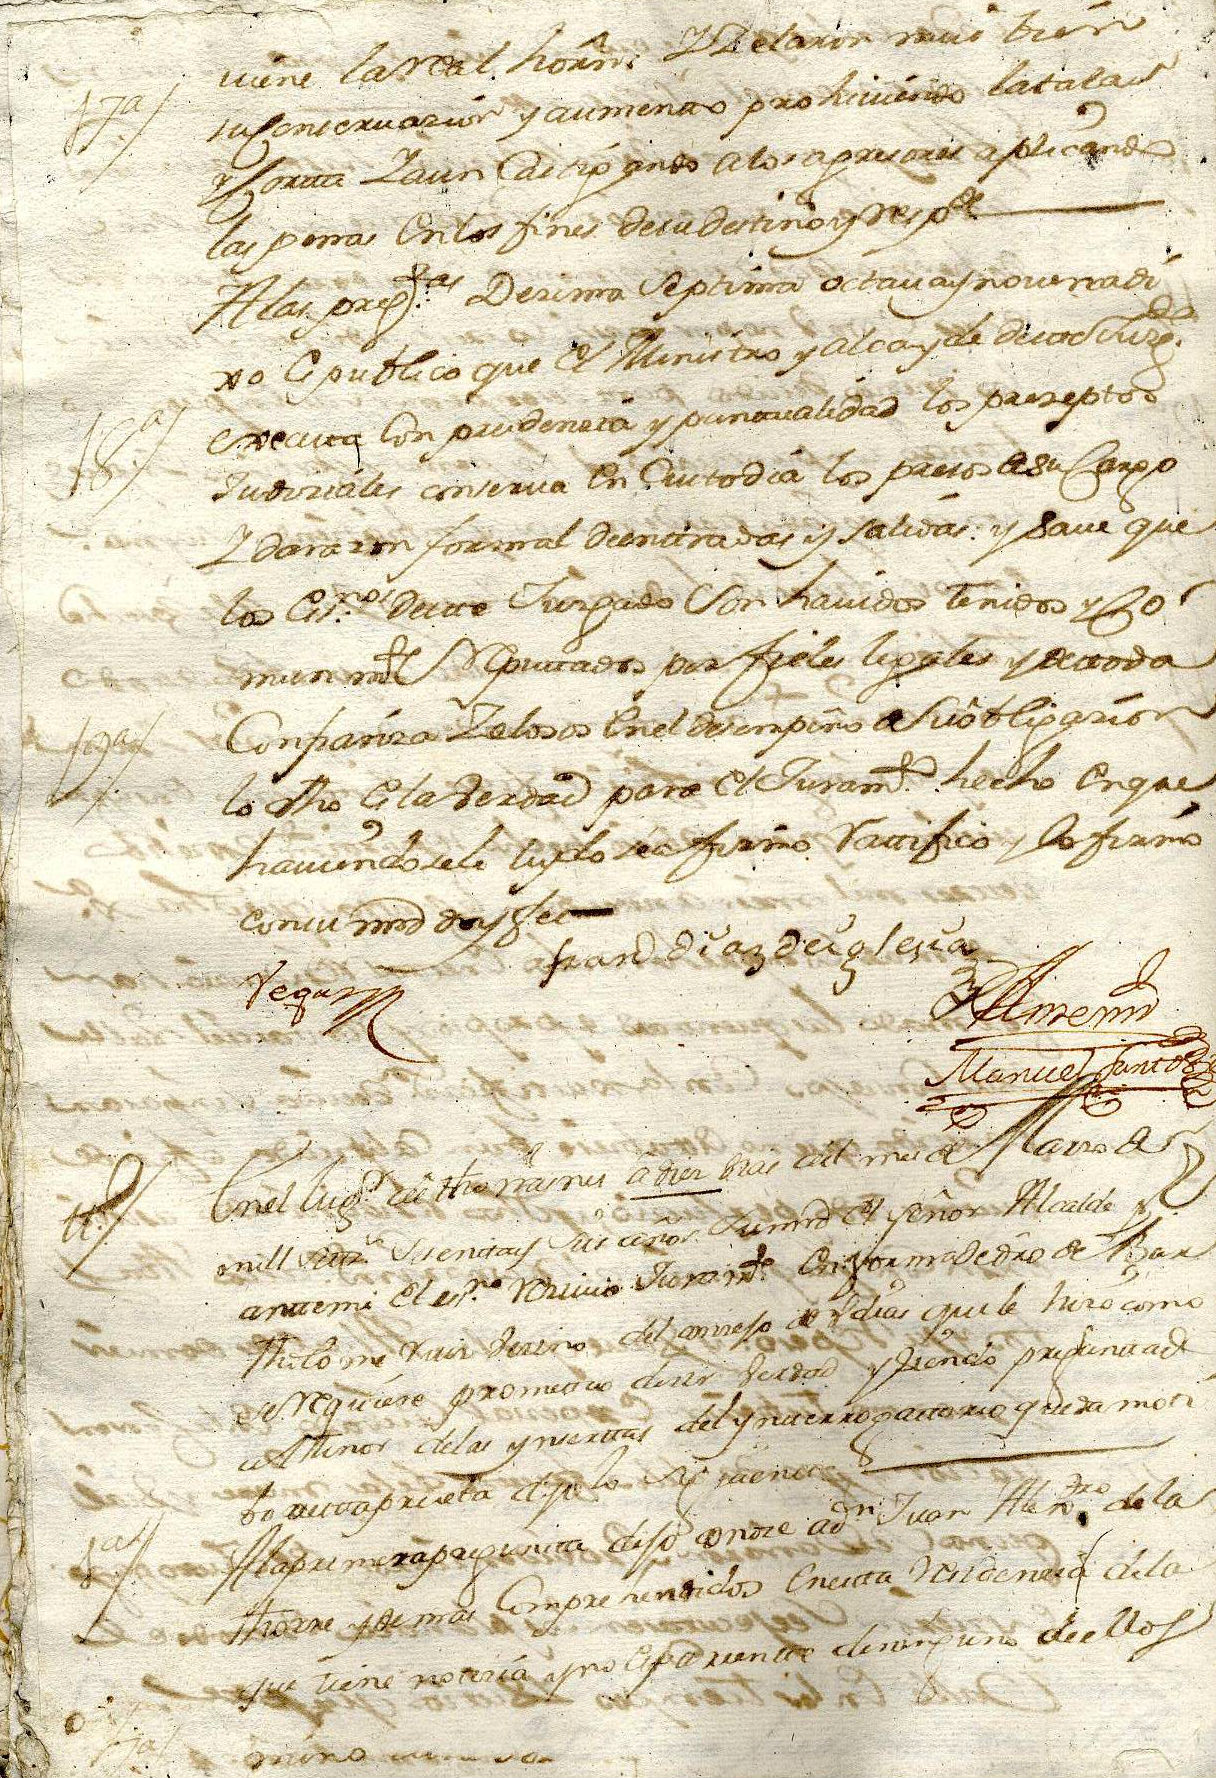 viene la Real horn. Y Zelaron mui bien
17ª/ su Conservazion y aumento prohiviendo la tala
y Corta Y aun Castigando a los agresores aplicando
las penas En los fines de su destino y resp.de
A las preg.tas Dezima Septima octava y novena di
xo Es publico que El Ministro y Alcayde de este Juzg.do
18ª/ executa Con prudencia y puntualidad los preseptos
Judiziales conserva En Custodia los presos a su Cargo
Y da razon formal de entradas y salidas: y save que
los Es.nos de este Juzgado Son havidos tenidos y Co
mun m.te Reputados por fieles legales y de toda
19ª/ Confianza Zelosos En el desempeño de su obligazion
lo dho Es la Verdad para El Juram.to hecho en que
haviendosele leydo se afirmo Ratifico y lo firmo
con su mrd doy fee
fran.co diaz de yglesia
Vega
Antemi
Manuel Santos
tt.º/ En el lug.r de thomines a diez dias del mes de Marzo de
mill sett.s Sesenta y Seis años Su mrd El señor Alcalde y
ante mi El es.no Rezivio Juram.to En forma de dro de Bar
tholome Ruiz Vezino del conzejo de que le hizo como
se Requiere prometio dezir Verdad y siendo preguntado
al tenor de las ynsertas del ynterrogatorio que da moti
bo a esta prueba dijo lo Siguiente
1ª/ A la primera pregunta dijo Conoze a d.n Juan Alex.dro de la
Thorre y demas Comprehendidos En esta Residencia de la
que tiene noticia y no Es pariente de ninguno de ellos